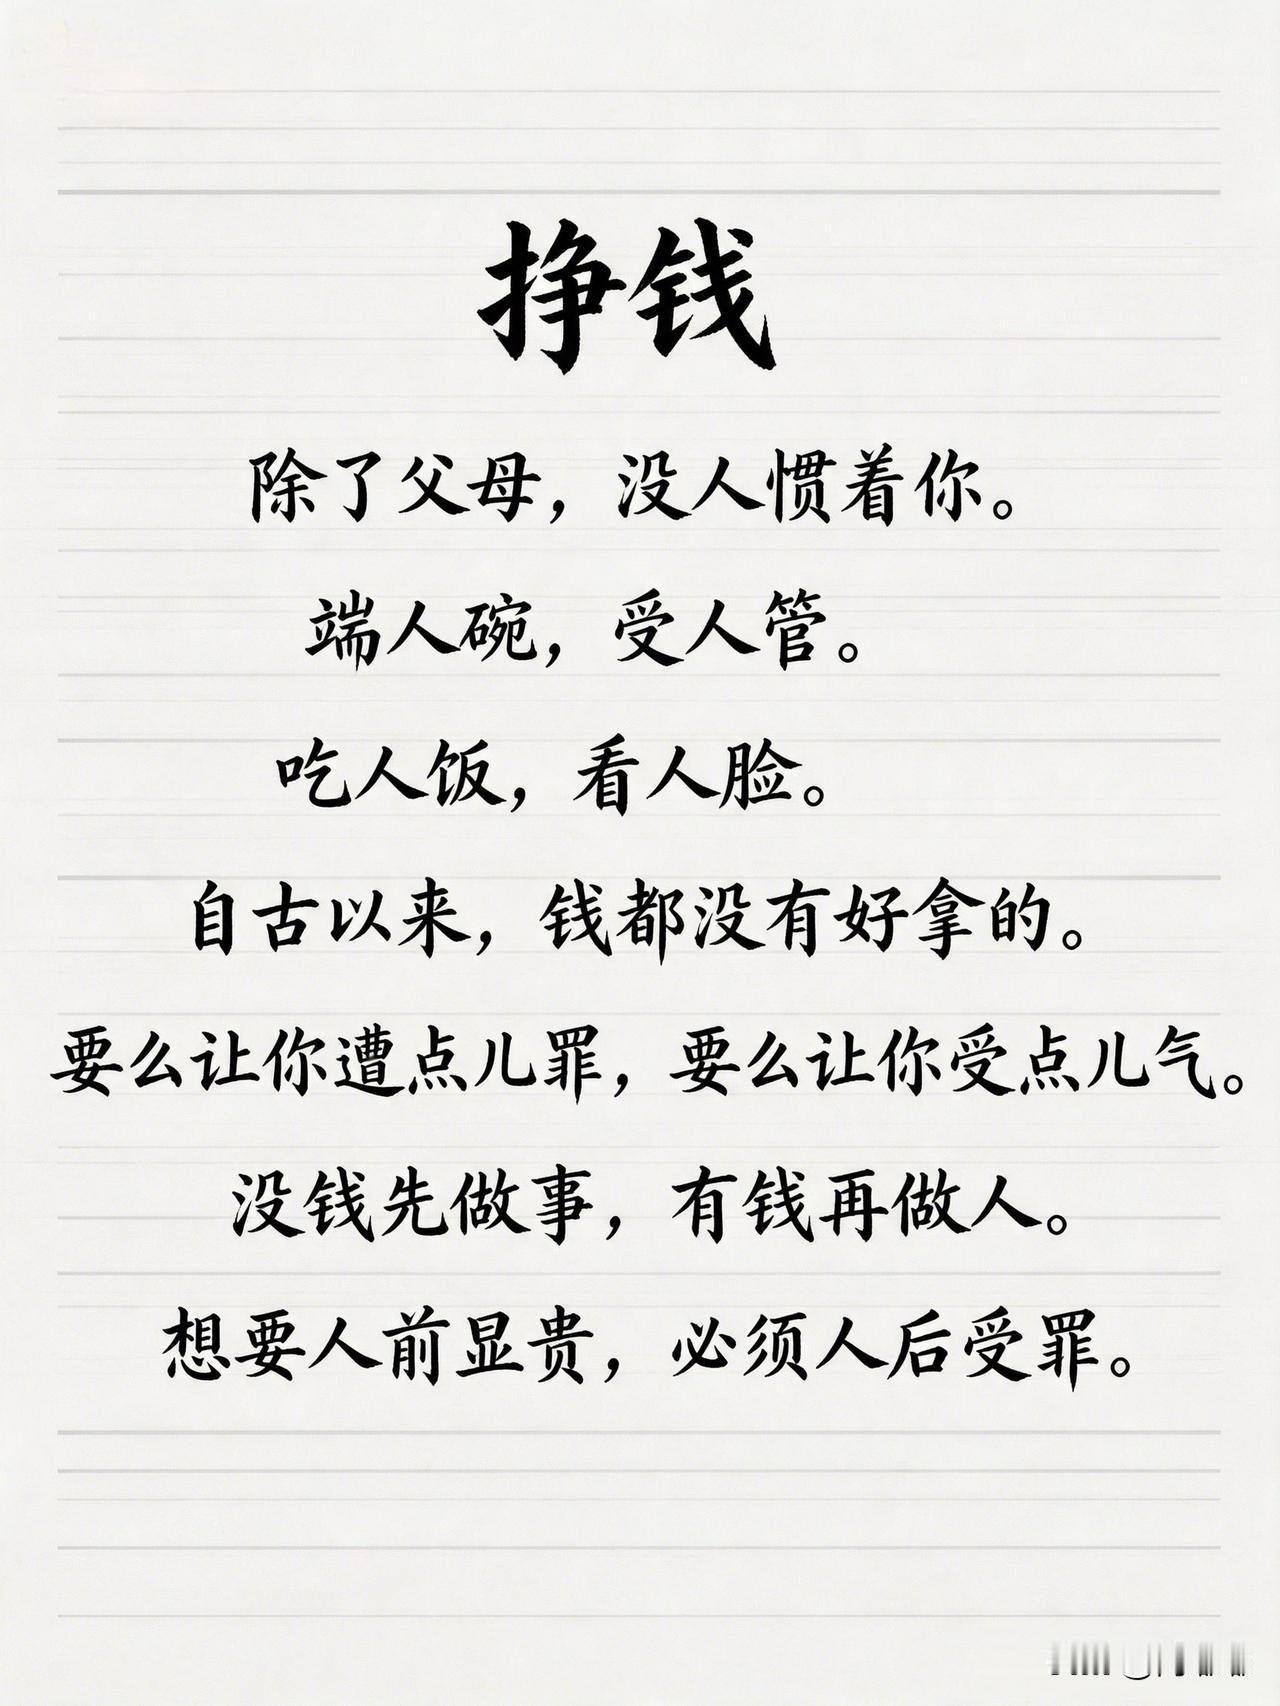 挣钱
除了父母，没人惯着你。
端人碗，受人管。
吃人饭，看人脸。
自古以来，钱都没有好拿的。
要么让你遭点儿罪，要么让你受点儿气。
没钱先做事，有钱再做人。
想要人前显贵，必须人后受罪。